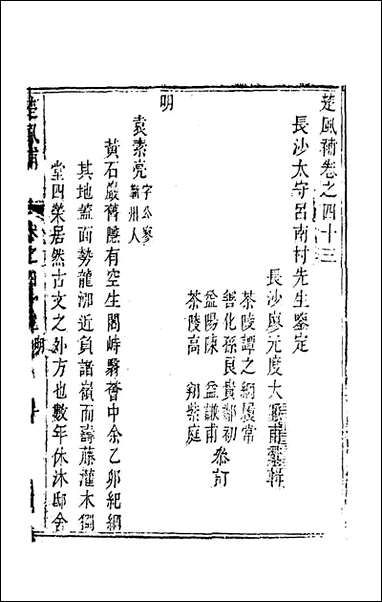 楚風補卷之四十三
長沙太守呂南村先生鑒定
長沙廖元度大隱甫彙輯
茶陵譚之綱履常
善化孫良貴鄰初
益陽陳益謙甫 叅訂
茶陵高 翔紫庭
明
袁素亮 字公寥 蘄州人
黃石巖舊隱有空生閣峙巖脊中余乙卯紀綱
其地蓋面勢龍湖近負諸嶺而壽藤灌木獨
堂四榮居然古文之外方也數年休沐邸舍